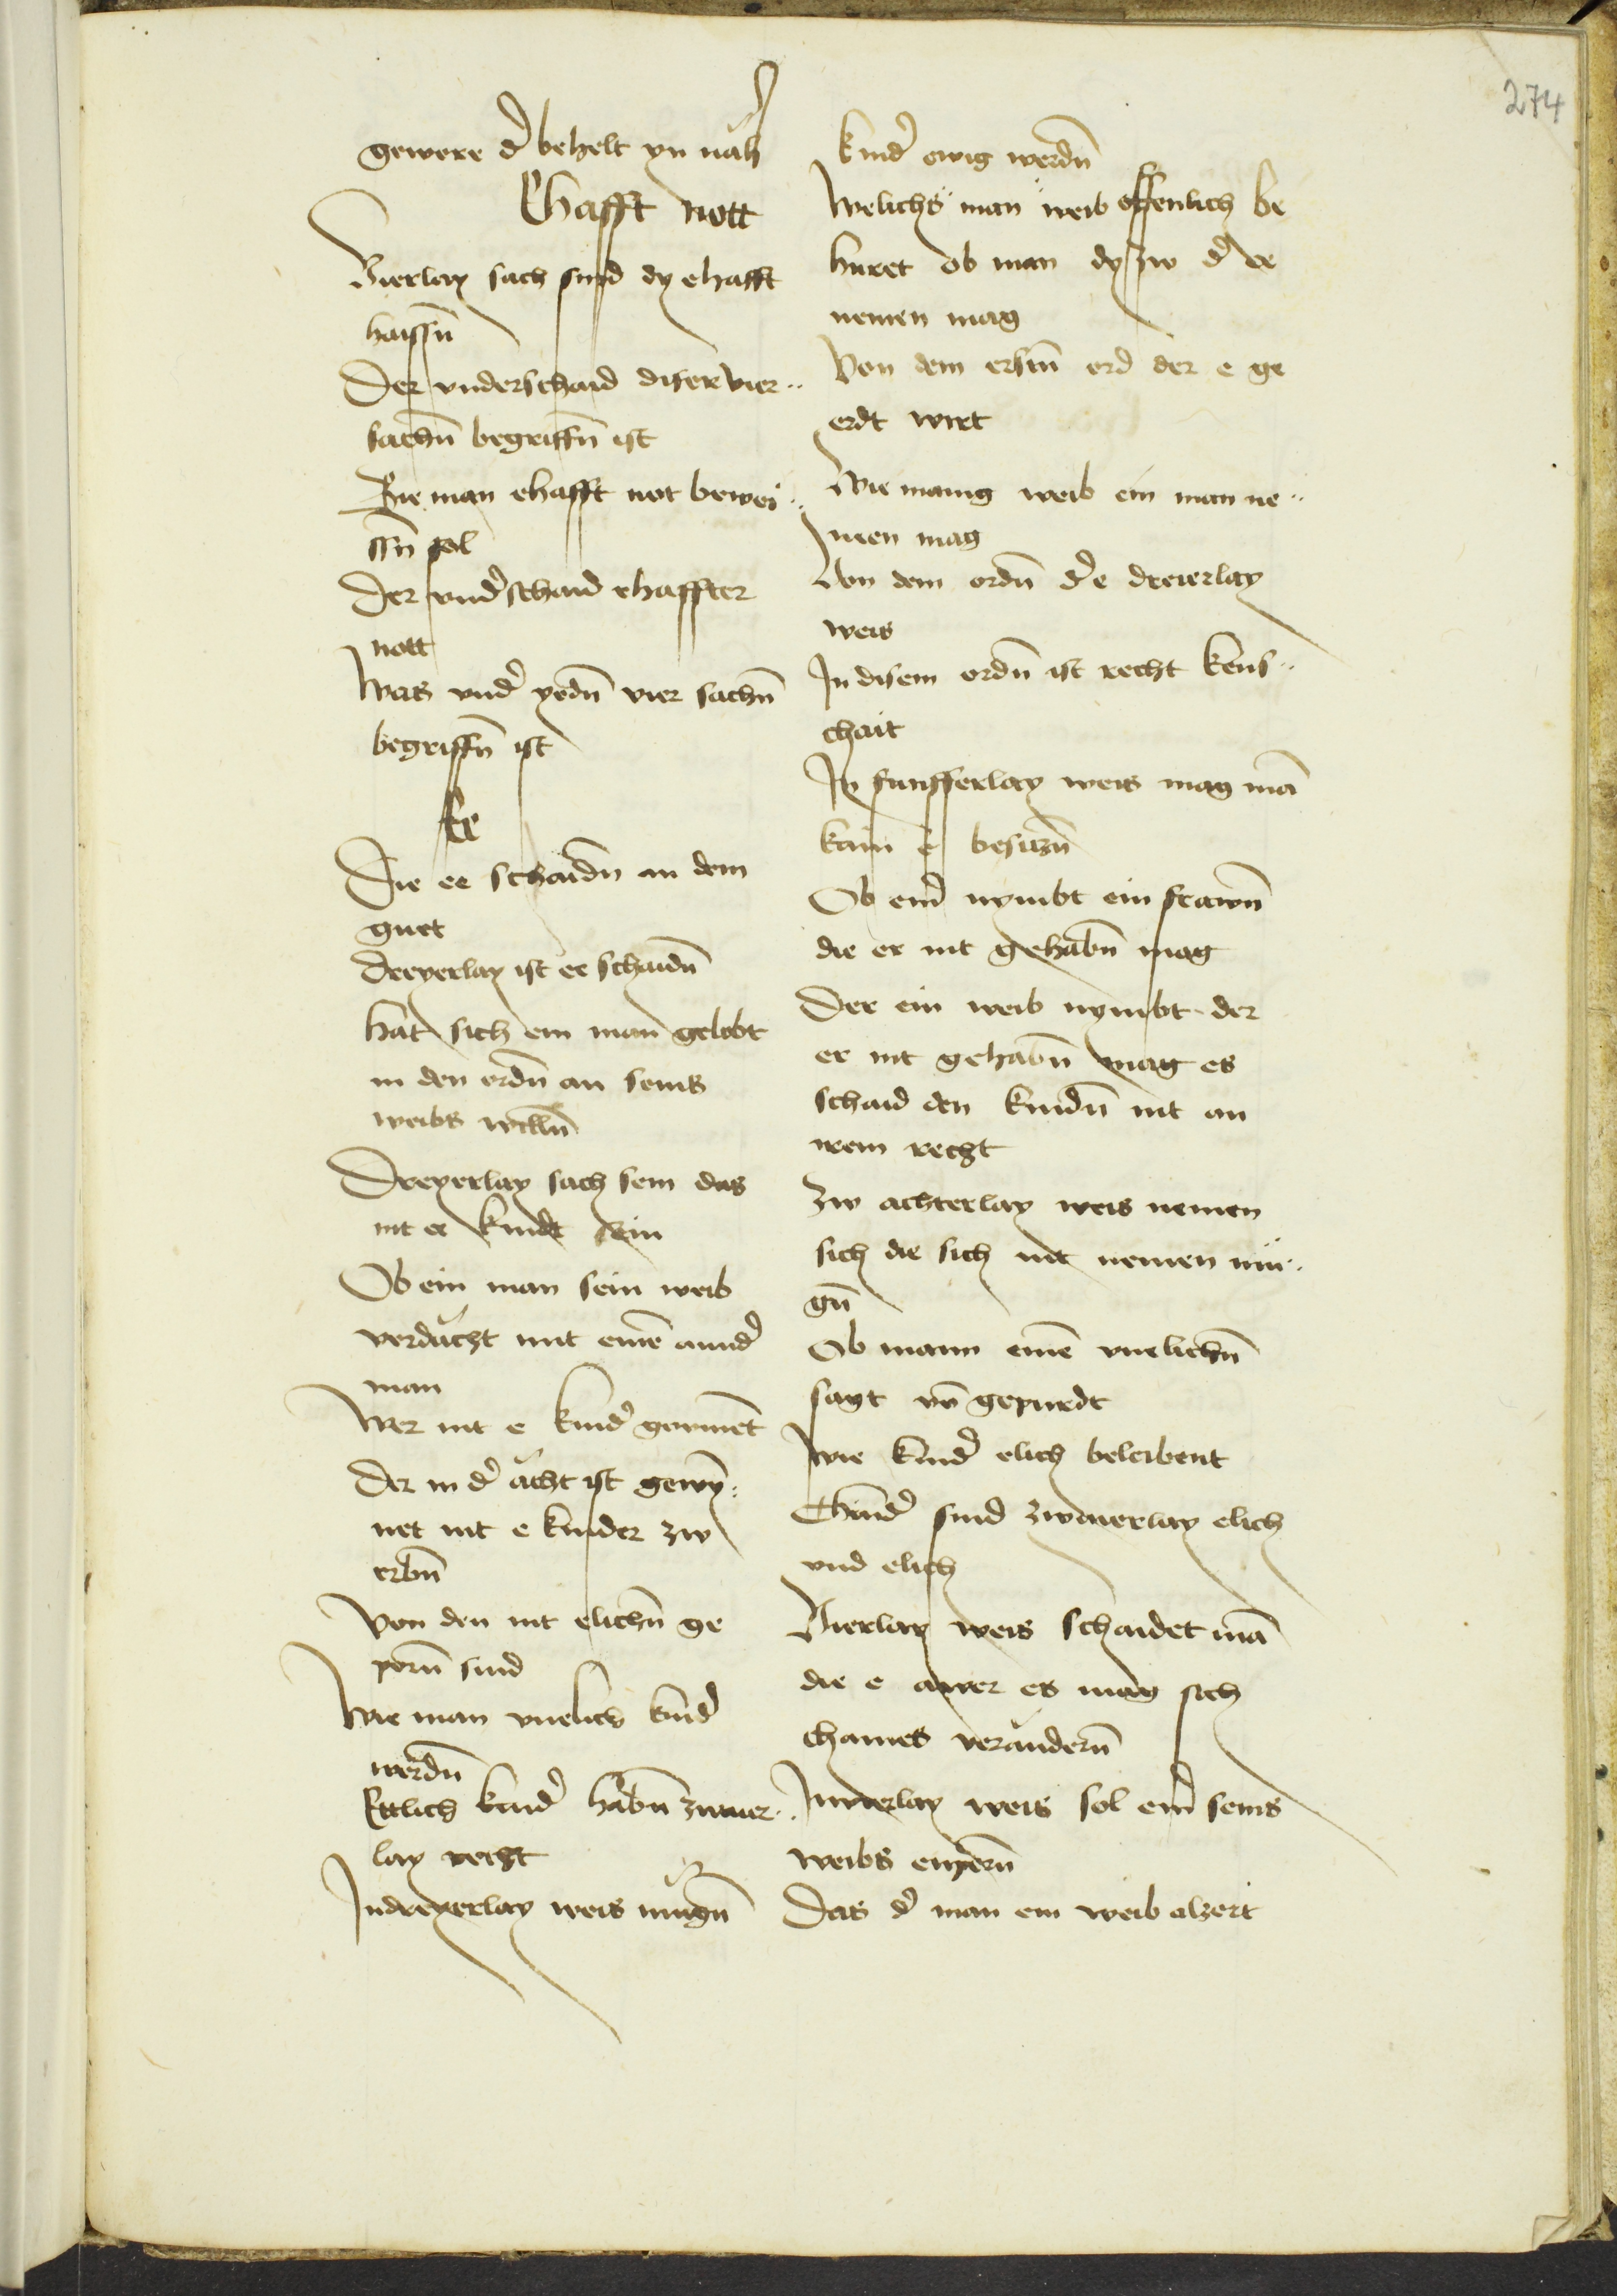 274
gewere d̾ behelt yn nach
Ehafft nott
Vierlay sach sind dy ehafft
haissn̄
Der vnderschaid diser vier
sachn̄ begriffn̄ ist
Wie man ehafft not bewei
ssn̄ sol
Der vnd̾schaid ehaffter
nott
Was vnd̾ yedn̄ vier sachn̄
begriffn̄ ist
Ee
Die ee schaidn̄ an dem
guet
Dreyerlay ist ee schaidn̄
hat sich ein man gelobt
in den ordn̄ an seins
weibs willn̄
Dreyerlay sach sein das
nit ee kindt sein
Ob ein man sein weib
verdächt mit einē annd̾
man
Wer nit e kind̾ gewinnēt
Der in d̾ ächt ist gewÿ
net nit e kinder zw
erbn̄
Von den nit elichn̄ ge
porn̄ sind
Wie man vnelich kind̾
werdn̄
Ettlich kind̾ habn̄ zwaier
lay recht
In dreyerlay weis mugn̄
kind̾ ewig werdn̄
Welichs man weib offenlich be
huret ob man dy zw d̾ ee
nemen mag
Von dem erstn̄ ord der e ge
erdt wirt
Wie manig weib ein man ne
men mag
Von dem ordn̄ d̾ e dreierlay
weis
In disem ordn̄ ist recht keus
chait
In funfferlay weis mag mā
kain e besitzn̄
Ob ein̾ nymbt ein frawn̄
die er nit gehabn̄ mag
Der ein weib nymbt der
er nit gehabn̄ mag es
schaid den kindn̄ nit an
irem recht
Zw achterlay weis nemen
sich die sich nit nemen mü
gn̄
Ob mann einē vnelichn̄
sagt vō gepurdt
Wie kind̾ elich beleibent
Chind̾ sind zwaierlay elich
vnd elich
Vierlay weis schaidet mā
die e awer es mag sich
chaines verändern̄
In vierlay weis sol ein̾ seins
weibs enpern̄
Das d̾ man ein weib alzeit